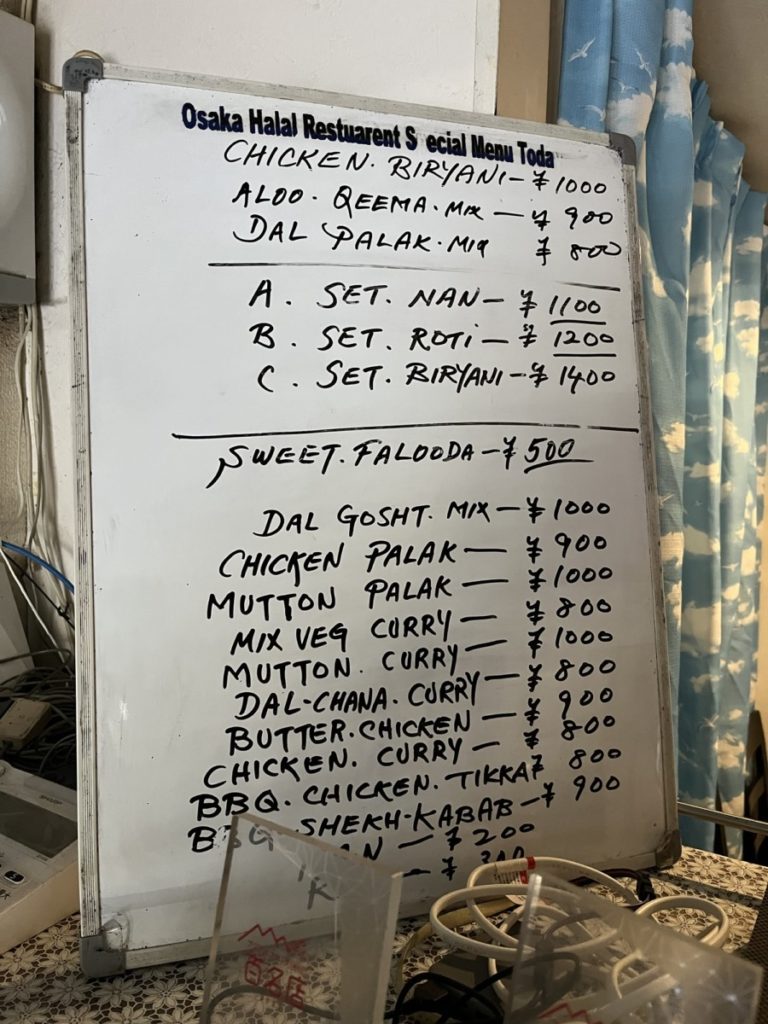 Osaka Halal Restuarent S ecial Menu Toda
CHICKEN. BIRYANI - ¥ 1000
ALOO. QEEMA. MIX — ¥ 900
DAL PALAK. MIX ¥ 800
A. SET. NAN - ¥ 1100
B. SET. ROTI - ¥ 1200
C. SET. BIRYANI - ¥ 1400
SWEET. FALOODA - ¥ 500
DAL GOSHT. MIX - ¥ 1000
CHICKEN PALAK — ¥ 900
MUTTON PALAK — ¥ 1000
MIX VEG CURRY — ¥ 800
MUTTON. CURRY — ¥ 1000
DAL-CHANA. CURRY — ¥ 800
BUTTER. CHICKEN — ¥ 900
CHICKEN. CURRY — ¥ 800
BBQ. CHICKEN. TIKKA ¥ 800
BBQ SHEKH-KABAB - ¥ 900
— ¥ 200
— ¥
百名店